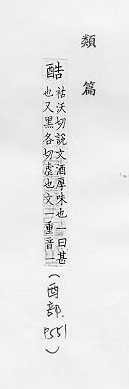 類篇
酷
祜沃切說文酒厚味也一曰甚
也又黑各切虐也文一重音一
(酉部.P551)